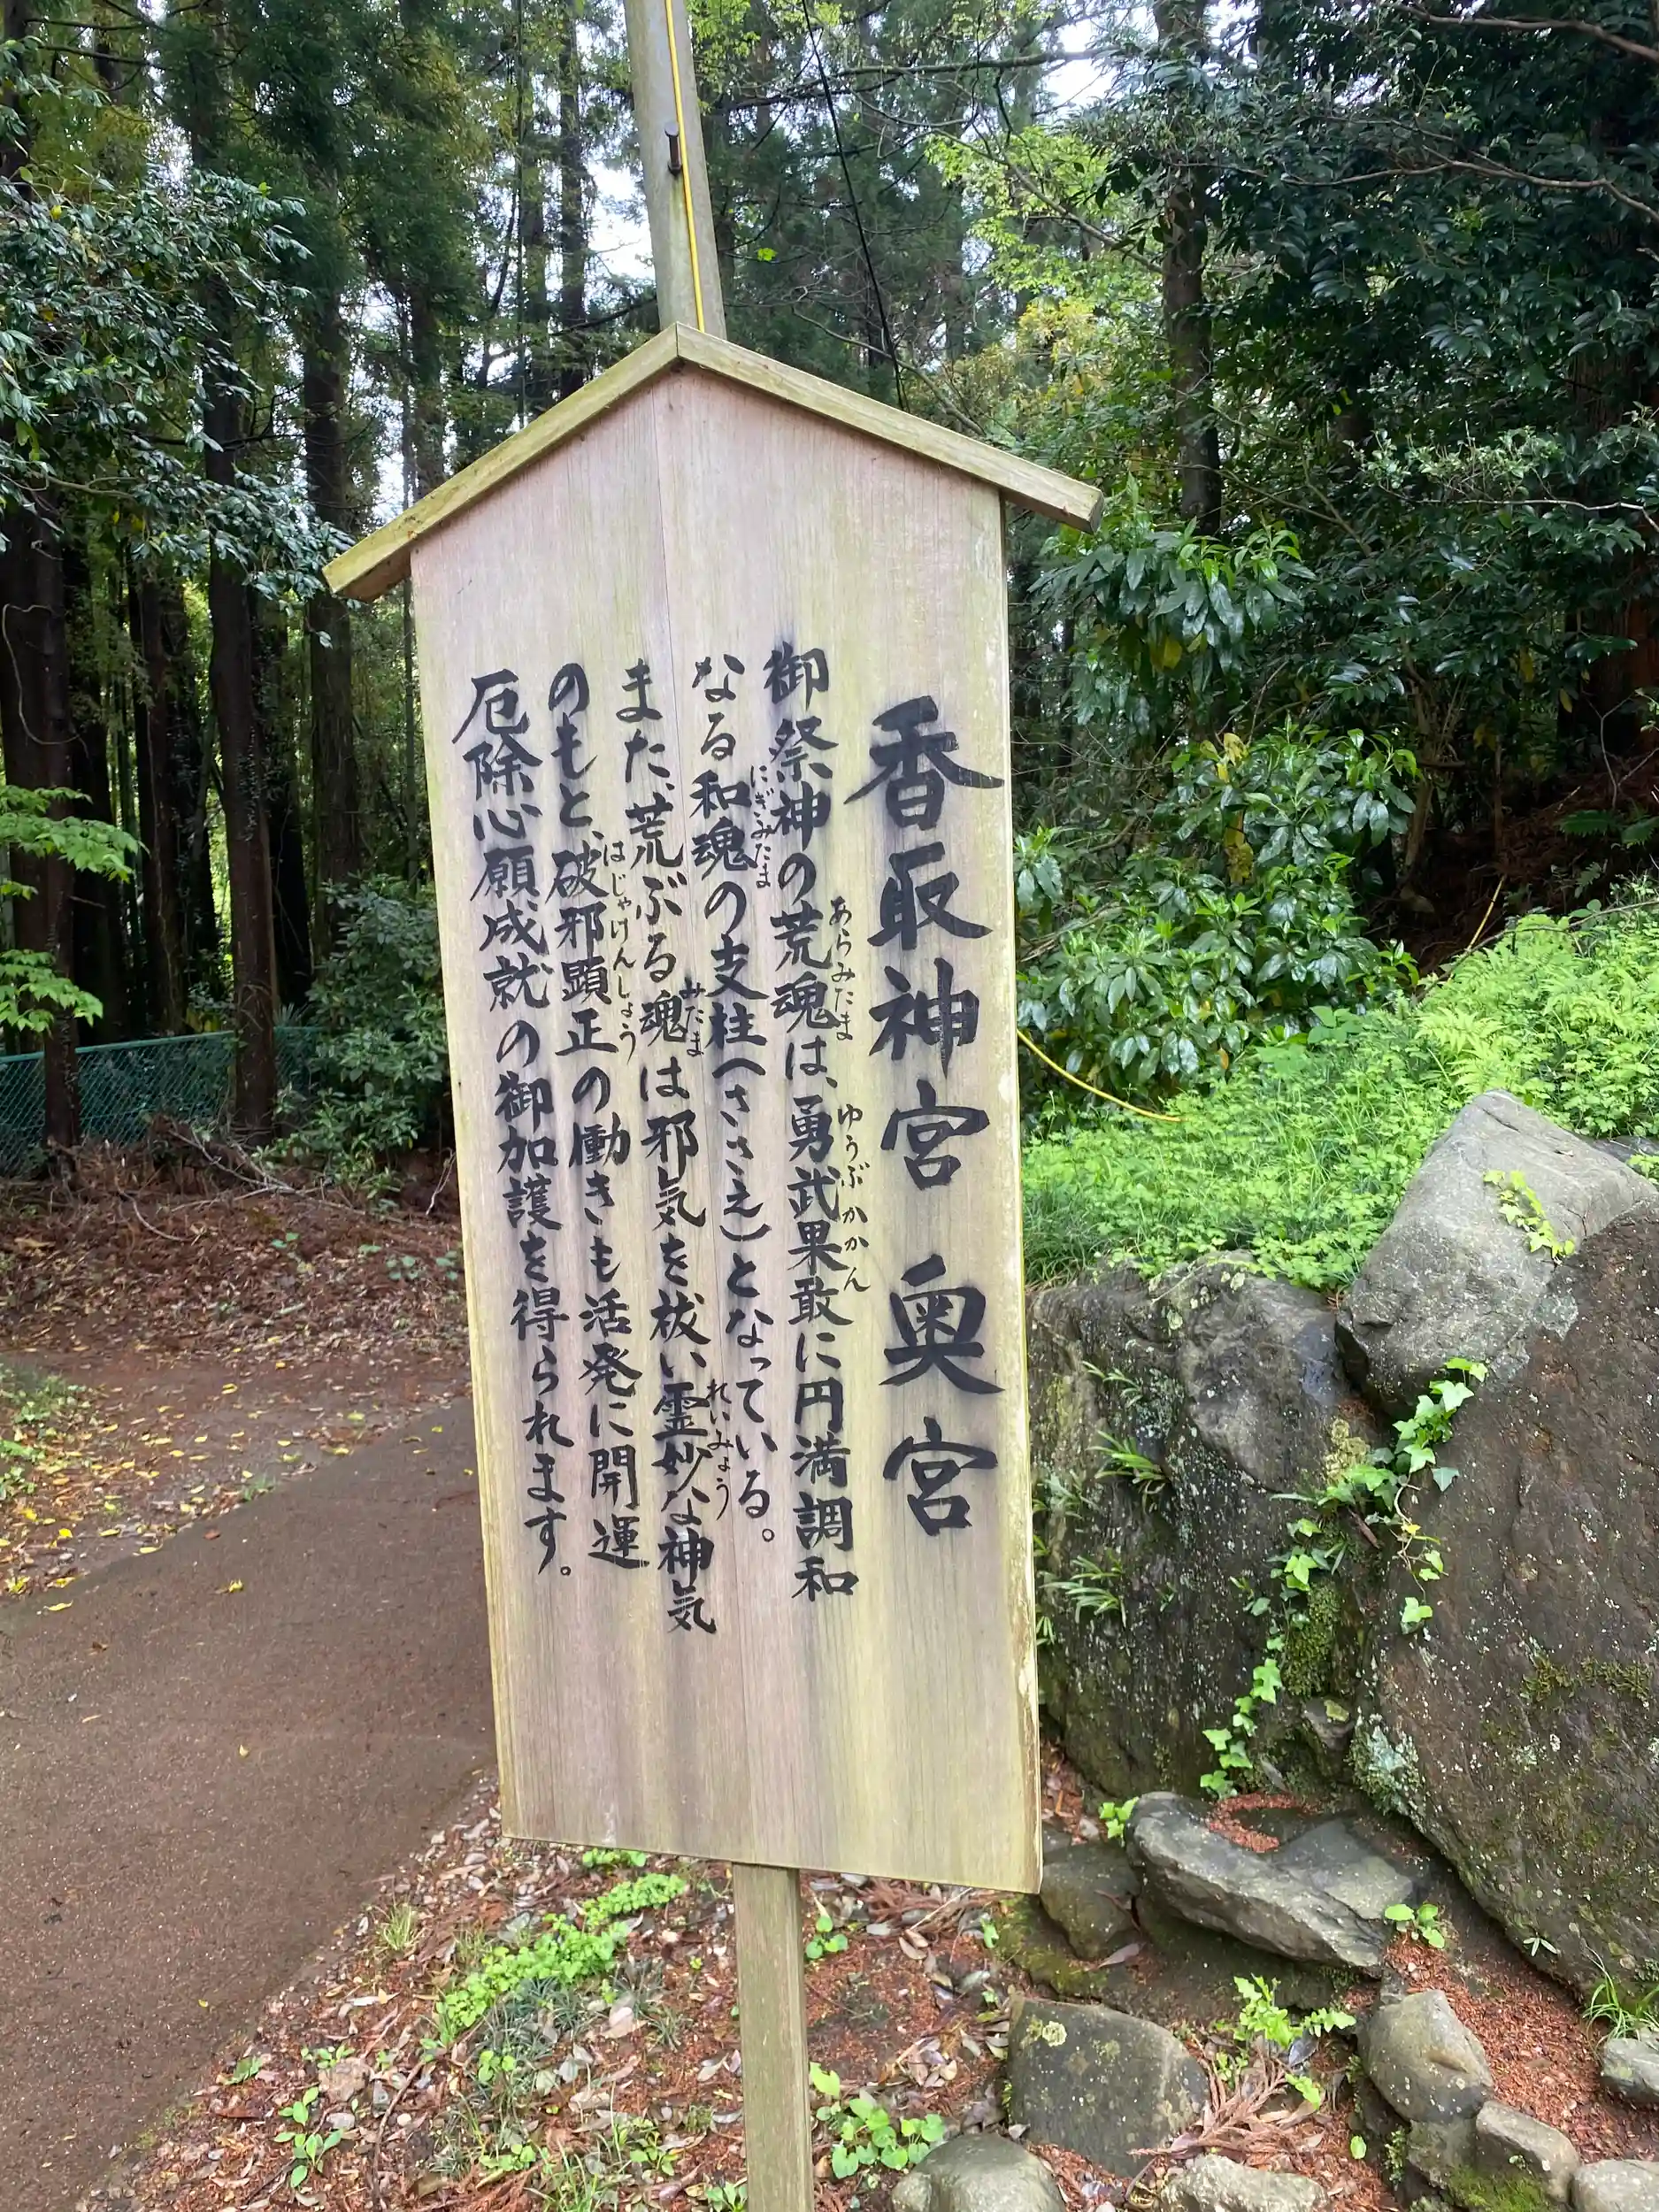 香取神宮 奥宮
御祭神の荒魂は、勇武果敢に円満調和
あらみたま ゆうぶかかん
なる和魂の支柱(ささえ)となっている。
にぎみたま
また、荒ぶる魂は邪気を祓い霊妙な神気
みたま れいみょう
のもと、破邪顕正の働きも活発に開運
はじゃけんしょう
厄除心願成就の御加護を得られます。